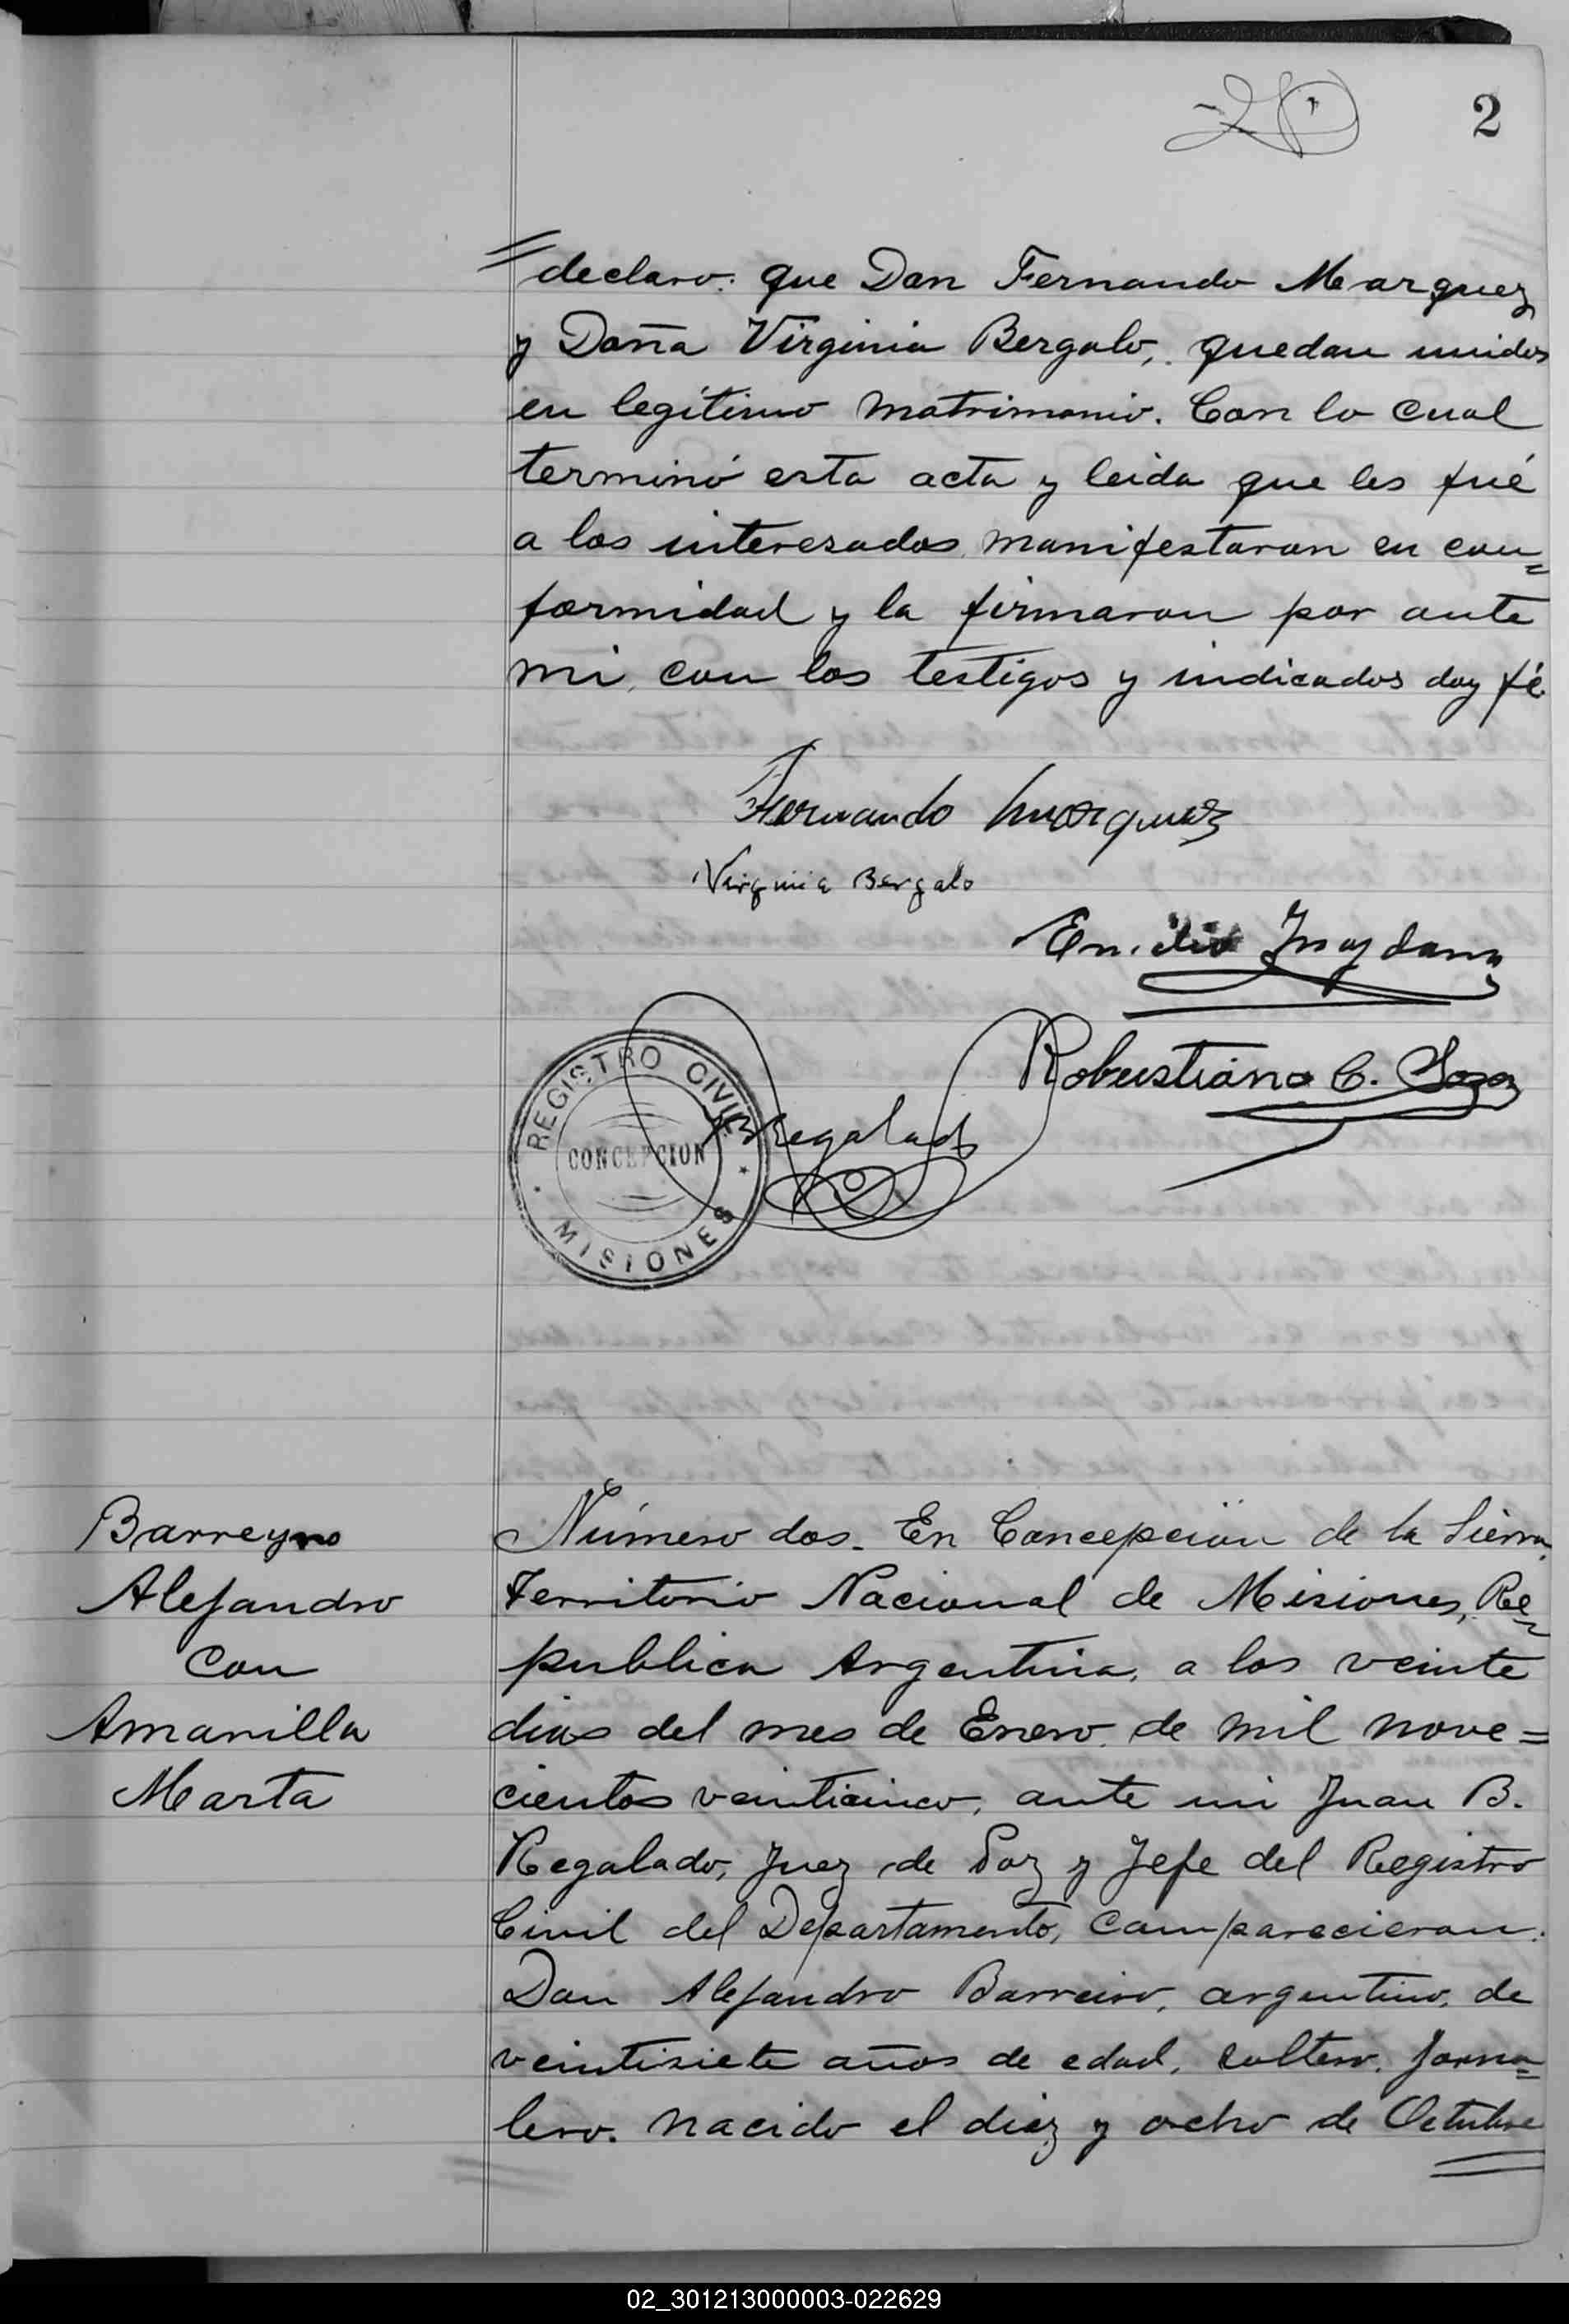 2
declaro: que Don Fernando Marquez
y Doña Virginia Bergalo, quedan unidos
en legítimo matrimonio. Con lo cual
terminó esta acta y leida que les fué
a los interesados manifestaron en con=
formidad y la firmaron por ante
mi, con los testigos y indicados doy fé.
Fernando Marquez
Virginia Bergalo
Emilio
Robustiano C. Soza
REGISTRO CIVIL
CONCEPCION
MISIONES
Regalado
Barreyro
Alejandro
Con
Amarilla
Marta
Número dos. En Concepción de la Sierra,
Territorio Nacional de Misiones, Re=
publica Argentina, a los veinte
dias del mes de Enero de mil nove=
cientos veinticinco, ante mi Juan B.
Regalado, Juez de Paz y Jefe del Registro
Civil del Departamento, comparecieron:
Don Alejandro Barreiro, argentino, de
veintisiete años de edad, soltero, Jorna=
lero. nacido el diez y ocho de Octubre
02_301213000003-022629